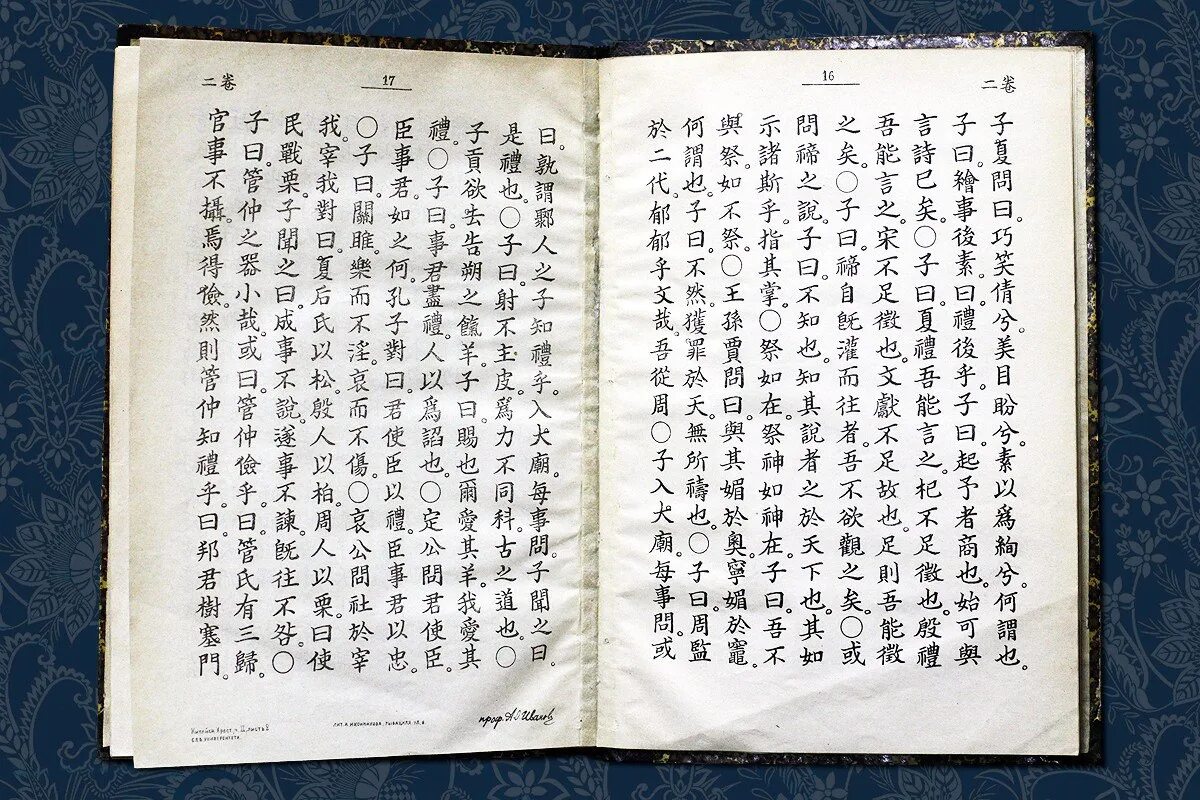 二卷
16
子夏問曰。巧笑倩兮。美目盼兮。素以爲絢兮。何謂也。
子曰。繪事後素。曰。禮後乎。子曰。起予者商也。始可與
言詩已矣。〇子曰。夏禮吾能言之。杞不足徵也。殷禮
吾能言之。宋不足徵也。文獻不足故也。足則吾能徵
之矣。〇子曰。禘自旣灌而往者。吾不欲觀之矣。〇或
問禘之說。子曰。不知也。知其說者之於天下也。其如
示諸斯乎。指其掌。〇祭如在。祭神如神在。子曰。吾不
與祭。如不祭。〇王孫賈問曰。與其媚於奧。寧媚於竈。
何謂也。子曰。不然。獲罪於天。無所禱也。〇子曰。周監
於二代。郁郁乎文哉。吾從周〇子入大廟。每事問。或
二卷
17
曰。孰謂鄹人之子知禮乎。入大廟。每事問。子聞之曰。
是禮也。〇子曰。射不主皮。爲力不同科。古之道也。〇
子貢欲去告朔之餼羊。子曰。賜也爾愛其羊。我愛其
禮。〇子曰。事君盡禮。人以爲諂也。〇定公問。君使臣。
臣事君。如之何。孔子對曰。君使臣以禮。臣事君以忠。
〇子曰。關雎。樂而不淫。哀而不傷。〇哀公問社於宰
我。宰我對曰。夏后氏以松。殷人以柏。周人以栗。曰使
民戰栗。子聞之。曰。成事不說。遂事不諫。旣往不咎。〇
子曰。管仲之器小哉。或曰。管仲儉乎。曰。管氏有三歸。
官事不攝。焉得儉。然則管仲知禮乎。曰。邦君樹塞門。
проф. А. Ивановъ